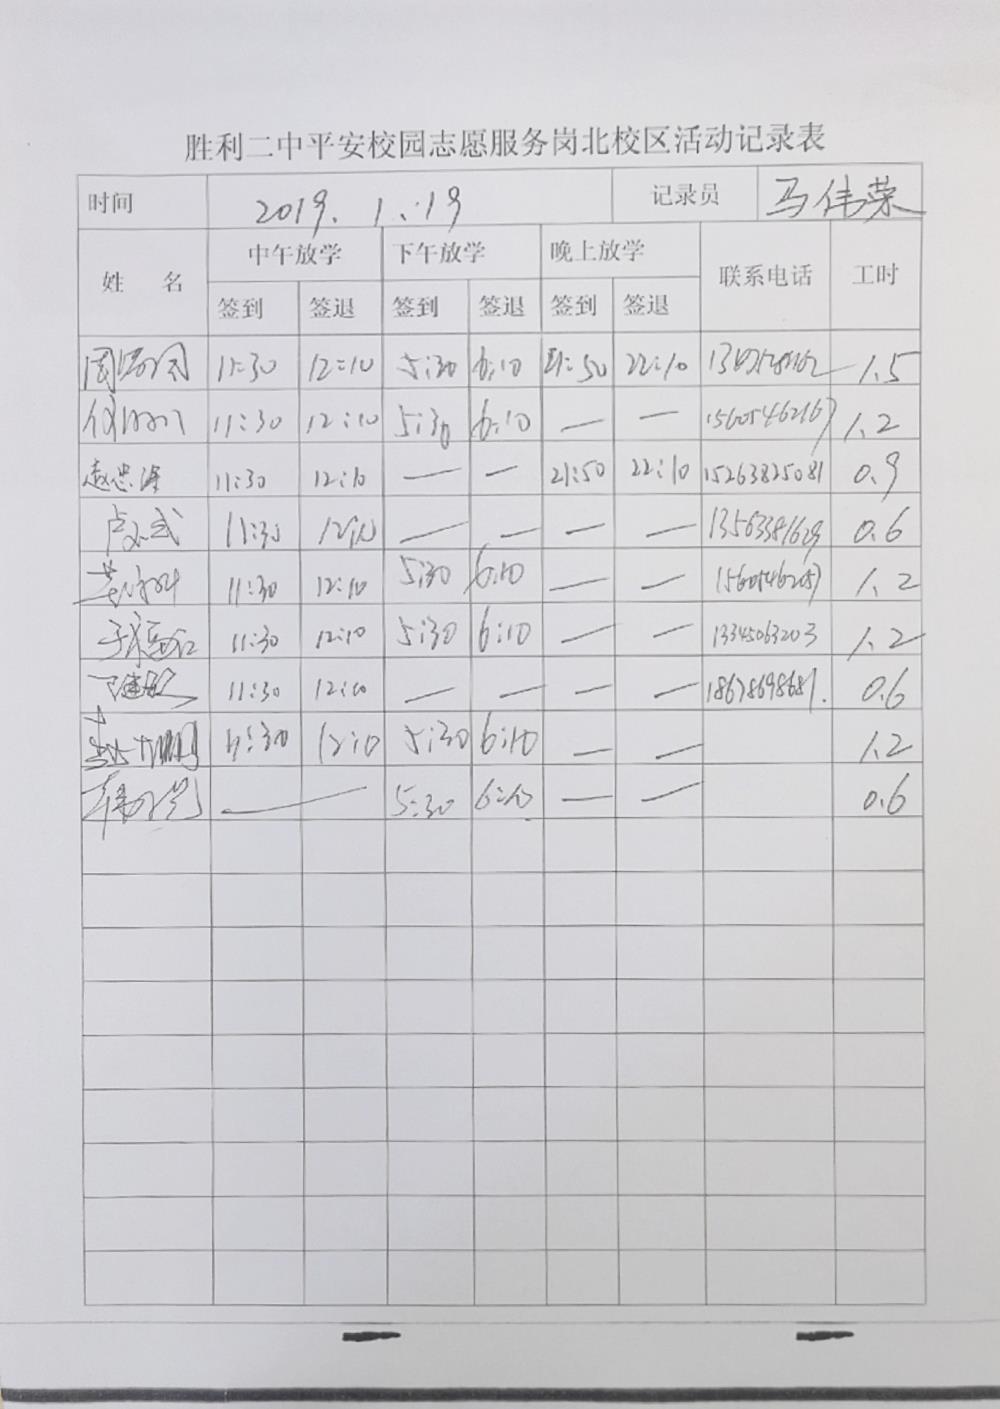 胜利二中平安校园志愿服务岗北校区活动记录表
时间 2019.1.19 记录员 马伟荣
姓 名 中午放学 下午放学 晚上放学 联系电话 工时
签到 签退 签到 签退 签到 签退
11:30 12:10 5:30 6:10 21:50 22:10 1.5
11:30 12:10 5:30 6:10 — — 15605462167 1.2
赵忠海 11:30 12:10 — — 21:50 22:10 15263825081 0.9
11:30 12:10 — — — — 13563381629 0.6
11:30 12:10 5:30 6:10 — — 1.2
11:30 12:10 5:30 6:10 — — 13345063203 1.2
11:30 12:10 — — — — 18678698681. 0.6
11:30 12:10 5:30 6:10 — — 1.2
— 5:30 6:10 — — 0.6